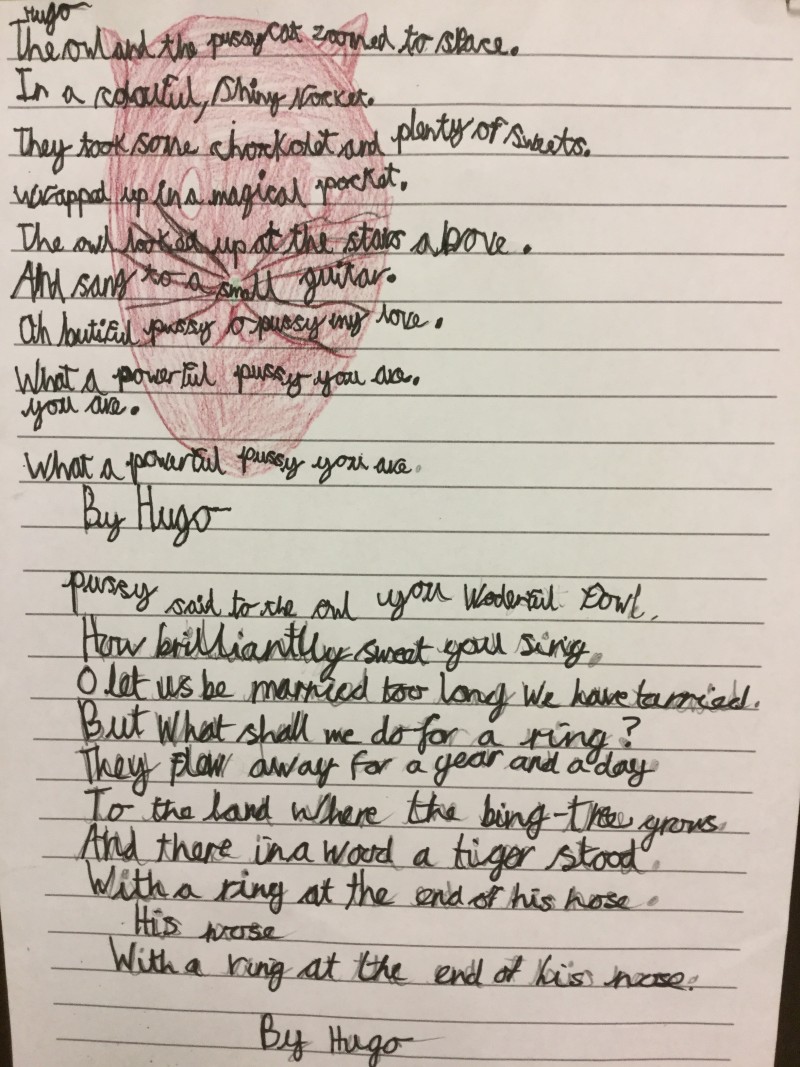 Hugo
The owl and the pussycat zoomed to space.
In a colouful, shiny rorcket.
They took some chorkolet and plenty of sweets.
wrapped up in a magical pocket.
The owl looked up at the stars above.
And sang to a small guitar.
Oh butiful pussy O pussy my love.
What a powerful pussy you are.
you are.
What a powerful pussy you are.
By Hugo
pussy said to the owl you Woderful Eowl,
How brilliantlly sweet you sing.
O let us be married too long we have tarried.
But What shall we do for a ring?
They flew away for a year and a day
To the land where the bing-tree grows
And there in a wood a tiger stood
With a ring at the end of his nose.
His nose
With a ring at the end of his nose.
By Hugo